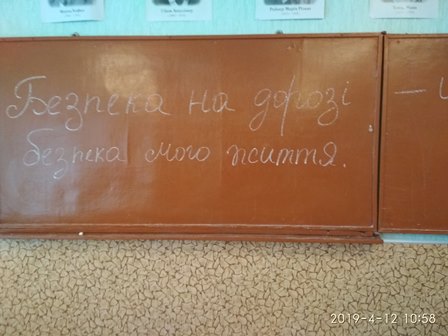 Безпека на дорозі
безпека мого життя.
2019-4-12 10:58